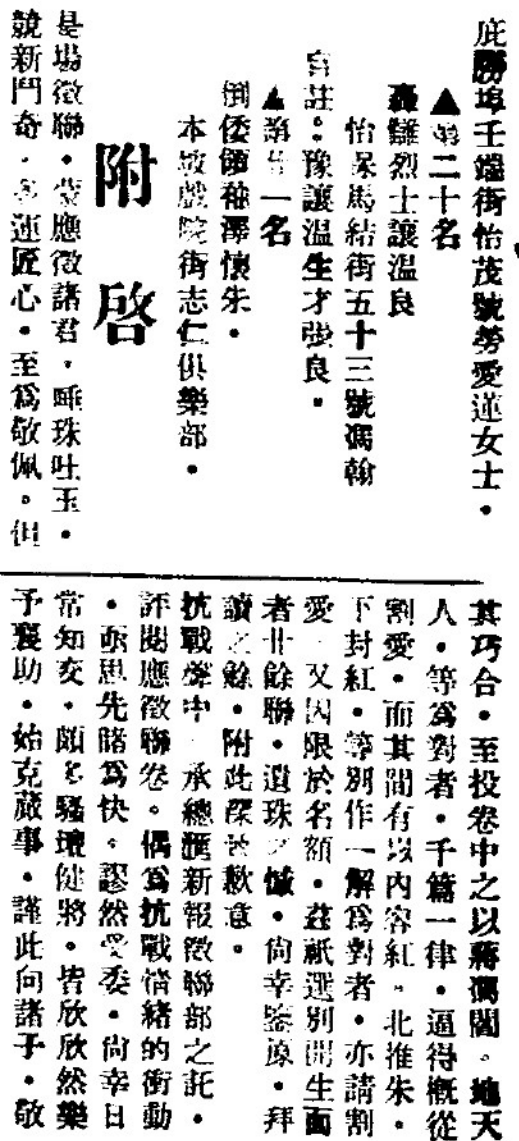 庇勝埠壬端街怡茂號勞愛蓮女士・
▲第二十名
轟讎烈士讓溫良
怡保馬結街五十三號馮翰
自註：豫讓溫生才張良・
▲第廿一名
倒倭領袖澤懷朱・
本埠戲院街志仁俱樂部・
附啓
是場徵聯・蒙應徵諸君・唾珠吐玉・
競新鬥奇・各運匠心・至爲敬佩。但
其巧合・至投卷中之以蔣馮閻。地天
人・等爲對者・千篇一律・逼得概從
割愛・而其間有以內容紅。北推朱・
下封紅・等別作一解爲對者・亦請割
愛 又因限於名額・茲祇選別開生面
者廿餘聯・遺珠之憾・尙幸鑒原・拜
讀之餘・附此深致歉意。
抗戰聲中 承總匯新報徵聯部之託・
評閱應徵聯卷。偶爲抗戰情緒的衝動
・亟思先睹爲快。謬然受委・尙幸日
常知交・頗多騷壇健將。皆欣欣然樂
予襄助・始克蕆事・謹此向諸子・敬